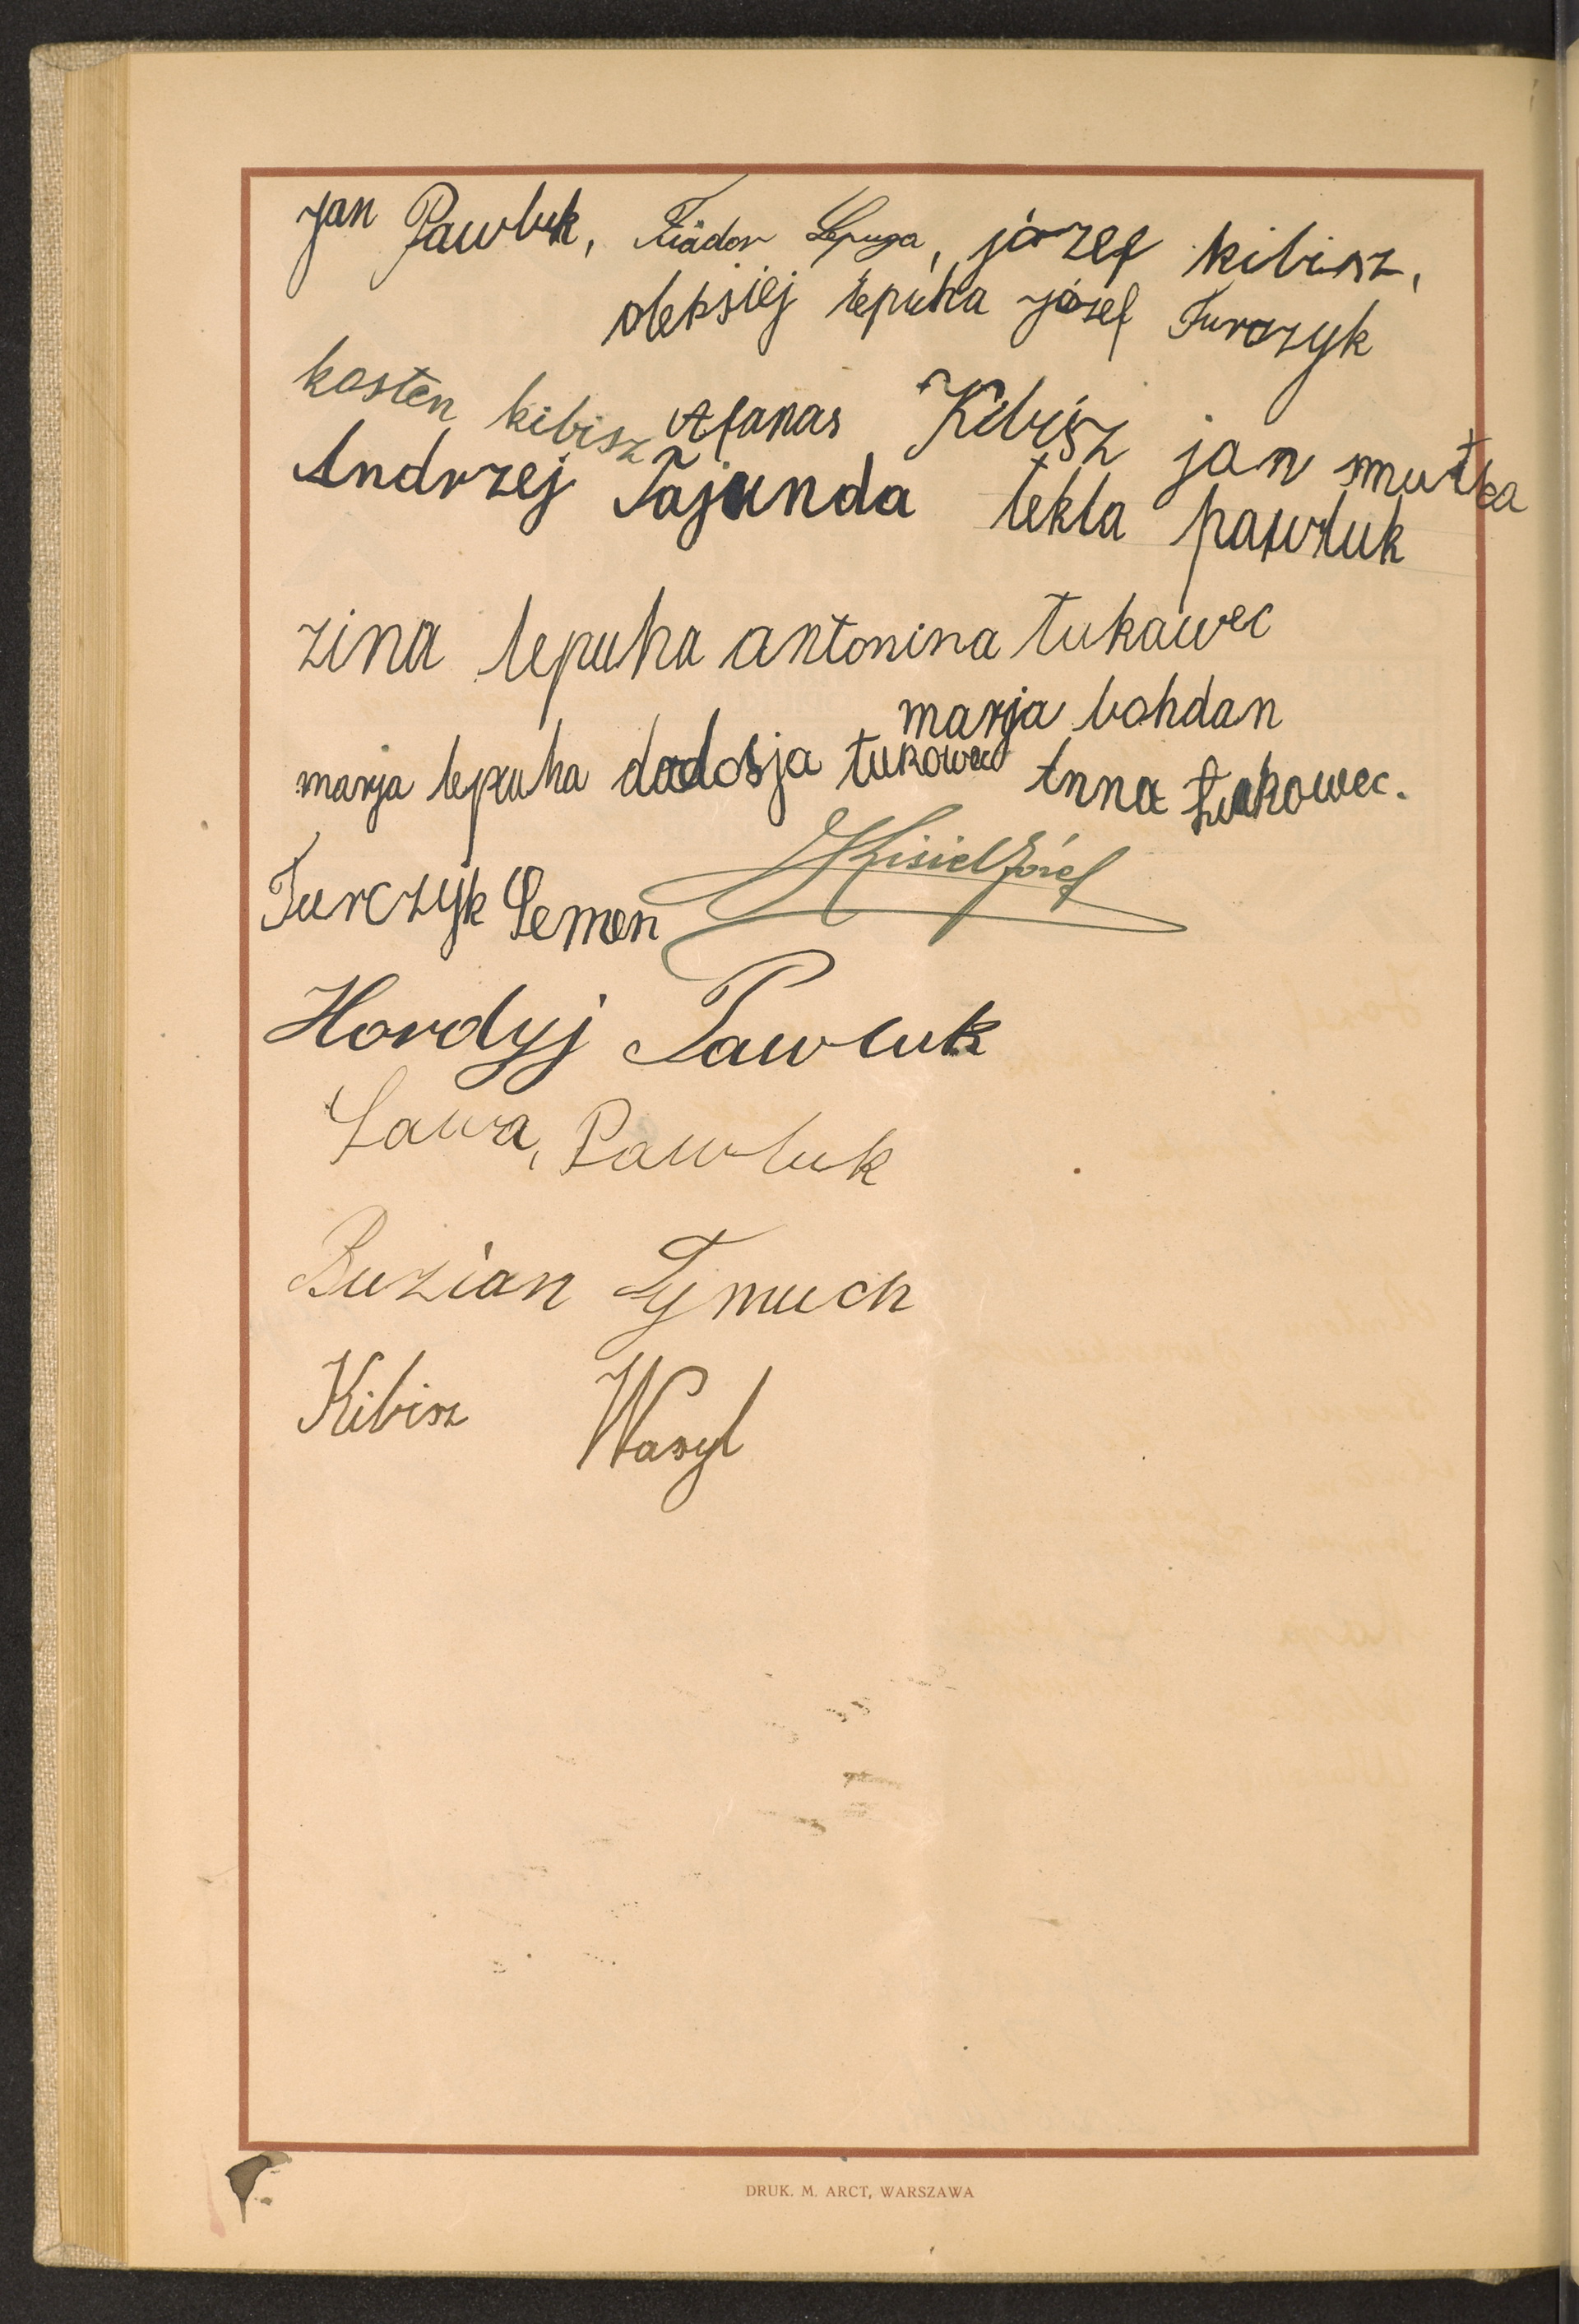 Jan Pawluk, Fiador Lepuga, józef kibisz,
oleksiej łepuha józef Turczyk
kosten kibisz Afanas Kibisz jan smutka
Andrzej Fajunda tekla pawluk
zina lepuha antonina łukawec
marja bohdan
marja lepuha dodosja łukowec Anna Łukowec.
Turczyk Semen Kisiel Józef
Hordyj Pawluk
Sawa, Pawluk
Buzian Tymuch
Kibisz Wasyl
DRUK. M. ARCT, WARSZAWA